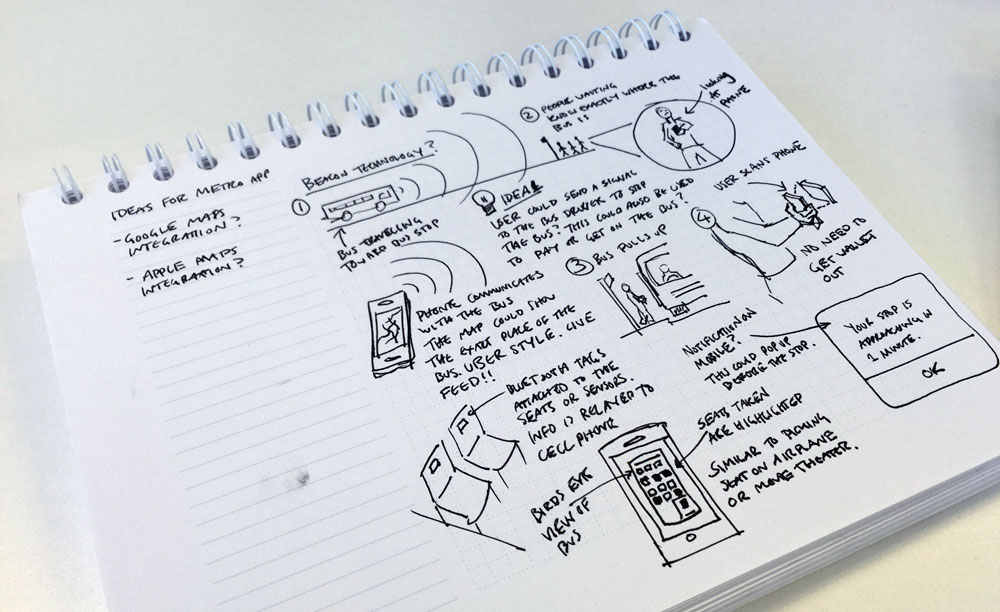 IDEAS FOR METRO APP
- GOOGLE MAPS
INTEGRATION?
- APPLE MAPS
INTEGRATION?
BEACON TECHNOLOGY?
1
BUS TRAVELING
TOWARD BUS STOP
2 PEOPLE WAITING
KNOW EXACTLY WHERE THE
BUS IS
looking
AT
PHONE
IDEA!
USER COULD SEND A SIGNAL
TO THE BUS DRIVER TO STOP
THE BUS? THIS COULD ALSO BE USED
TO PAY OR GET ON THE BUS?
PHONE COMMUNICATES
WITH THE BUS
THE MAP COULD SHOW
THE EXACT PLACE OF THE
BUS. UBER STYLE. LIVE
FEED!!
3 BUS PULLS UP
USER SCANS PHONE
4
NO NEED TO
GET WALLET
OUT
NOTIFICATION ON
MOBILE?
THIS COULD POP UP
BEFORE THE STOP.
YOUR STOP IS
APPROACHING IN
1 MINUTE.
OK
BLUETOOTH TAGS
ATTACHED TO THE
SEATS OR SENSORS.
INFO IS RELAYED TO
CELL PHONE
BIRDS EYE
VIEW OF
BUS
SEATS TAKEN
ARE HIGHLIGHTED
SIMILAR TO PICKING
SEAT ON AIRPLANE
OR MOVIE THEATER.